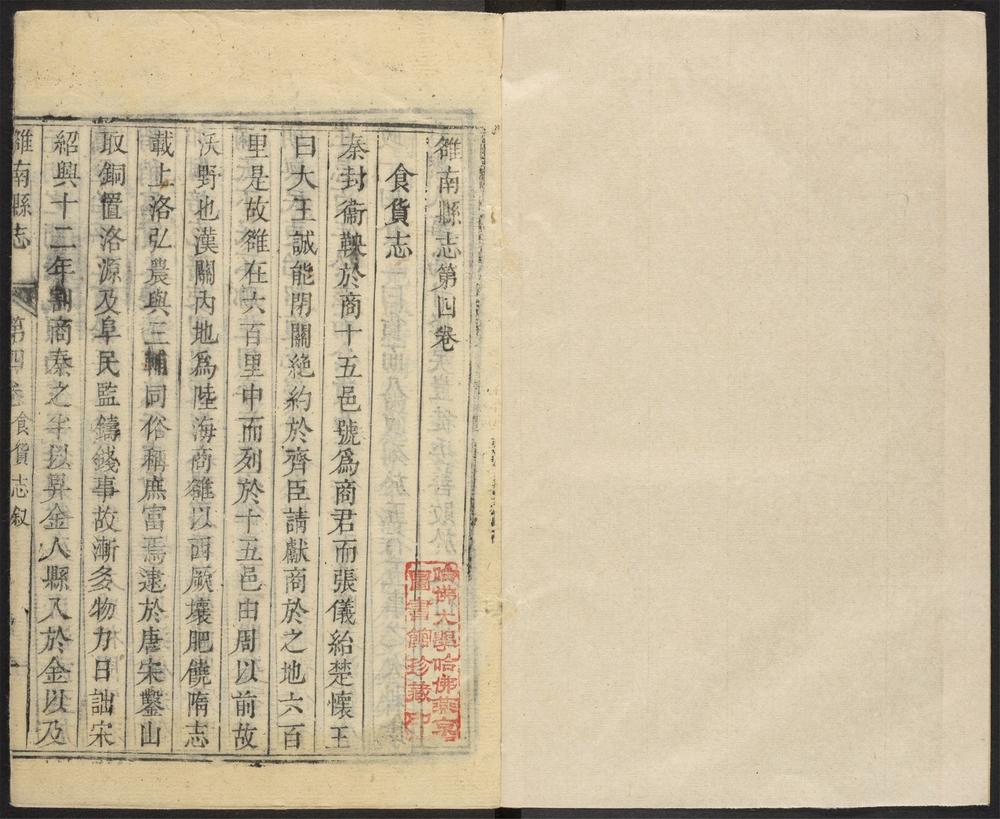 雒南縣志第四卷
食貨志
秦封衞鞅於商十五邑號爲商君而張儀紿楚懷王
曰大王誠能閉關絶約於齊臣請獻商於之地六百
里是故雒在六百里中而列於十五邑由周以前故
沃野也漢關內地爲陸海商雒以西厥壤肥饒隋志
載上洛弘農與三輔同俗稱庶富焉逮於唐宋鑿山
取銅置洛源及阜民監鑄錢事故漸多物力日詘宋
紹興十二年割商秦之半以畀金人縣入於金以及
雒南縣志
第四卷食貨志叙
哈佛大學哈佛燕京
圖書館珍藏印